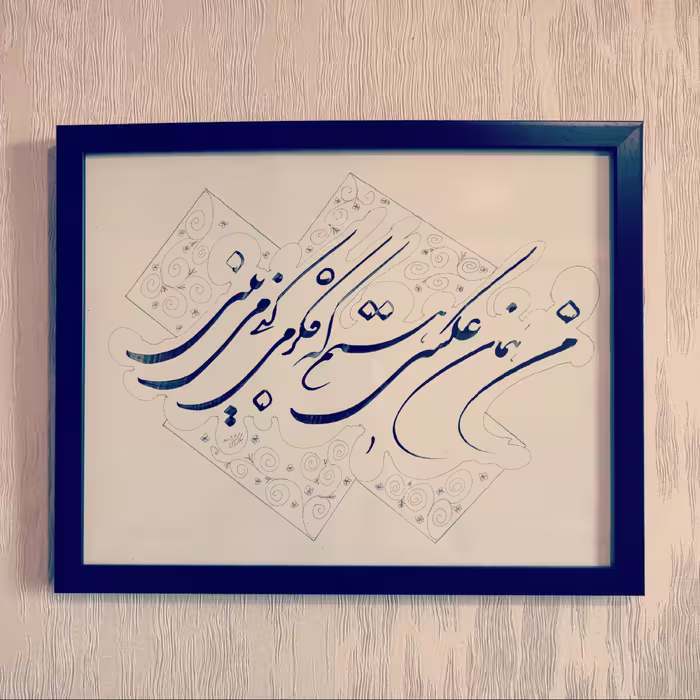 من همان عکسی هستم که فکر می کنی می بینی